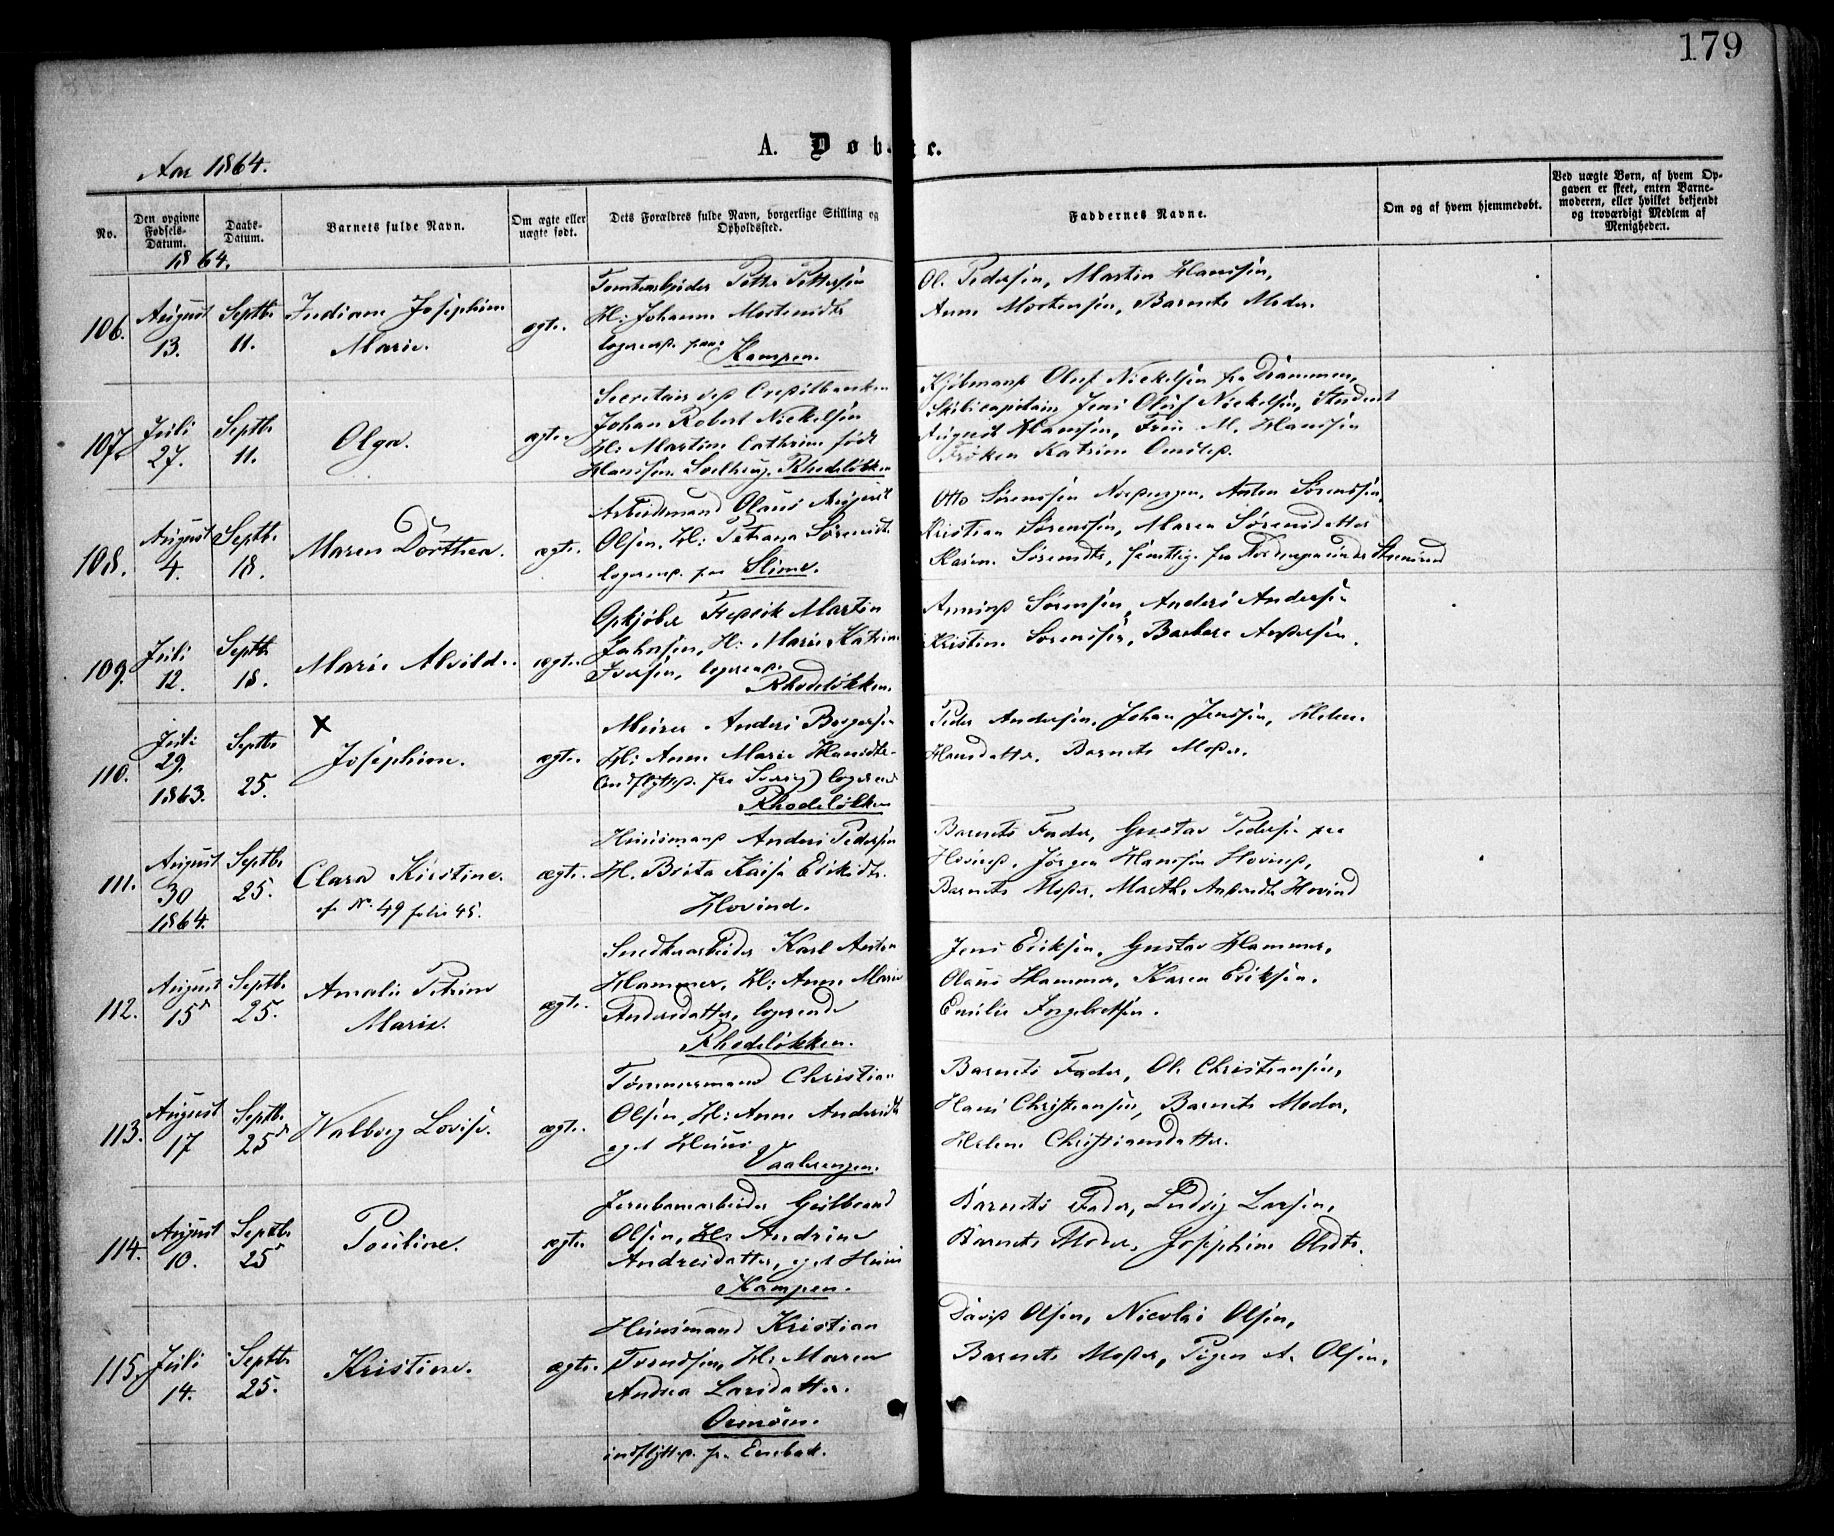 179
A. Døb e.
Aar 1864.
No.
Den opgivne Fødsels-Datum.
Daabs-Datum.
Barnets fulde Navn.
Om ægte eller uægte født.
Dets Forældres fulde Navn, borgerlige Stilling og Opholdssted.
Faddernes Navne.
Om og af hvem hjemmedøbt.
Ved uægte Børn, af hvem Opgaven er skeet, enten Barnemoderen, eller hvilket bekjendt og troværdigt Medlem af Menigheden.
1864.
106.
August 13.
Septbr 11.
Josephine
Marie.
ægte.
Tomtearbeider Petter Pettersen
H: Johanne Mortensdtr
logerend paa
Kampen.
Ole Pedersen, Martin Hanssen,
Anne Mortensen, Barnets Moder.
107.
Juli 27.
Septbr 11.
Olga.
ægte.
Secretair ved Creditbanken
Johan Robert Nickelsen
H: Martine Cathrine født
Hanssen. Rhodeløkken
Kjøbmand Oluf Nickelsen fra Drammen,
Skibscapitain Jens Oluf Nickelsen, Student
August Hanssen, Fru M. Hanssen
Frøken Katrine
108.
August 4.
Septbr 18.
Maren Dorthea.
ægte.
Arbeidsmand Olaus August
Olsen, H: Petrana Sørensdt.
logerend. paa
Otto Sørenssen Anton Sørenssen,
Kristian Sørenssen, Maren Sørensdatter
Karen Sørensdtr, samtlig. fra
109.
Juli 12.
Septbr 18.
Marie Alvild.
ægte.
Opkjøber Fredrik Martin
Johnsen, H: Marie Katrine
Iversen, logerend.
Rhodeløkken.
Sørensen, Anders Andersen
Kristine Sørenssen, Barbara Andersen.
110.
Juli 29. 1863.
Septbr 25.
X
Josephine.
ægte.
Murer Anders Borgersen
H: Anne Marie Hansdtr.
Indflyttet fra Sverig) logerend
Rhodeløkken
Peder Andersen, Johan Jenssen, Helene
Hansdatter. Barnets Moder.
111.
August 30 1864.
Septbr 25.
Clara Kirstine.
cfr No. 49 folio 45.
ægte.
Huusmand Anders Pedersen
H. Brita Kaisa Eriksdtr.
Hovind.
Barnets Fader, Gustav Pedersen fra
Hovind, Jørgen Hanssen Hovind,
Barnets Moder, Marthe Hovind
112.
August 15d
Septbr 25.
Amalie Petrine
Marie.
ægte.
Snedkerarbeider Karl Anton
Hammer, H: Anne Marie
Andersdatter, logerende
Rhodeløkken.
Jens Eriksen, Gustav Hammer,
Olaus Hammer, Karen Eriksen,
Emilie Ingebretsen.
113.
August 17
Septbr 25d
Walborg Lovise.
ægte.
Tømmermand Christian
Olsen, H: Anne Andersdtr
eget Huus
Vaalerengen.
Barnets Fader, Ole Christiansen,
Hans Christiansen, Barnets Moder,
Helene Christiansdatter.
114.
August 10.
Septbr 25
Pouline.
ægte.
Jernbanearbeider Gulbrand
Olsen, H: Andrine
Andreasdatter, eget Huus
Kampen.
Barnets Fader, Ludvig Larsen,
Barnets Moder, Josephine Olsdtr.
115.
Juli 14.
Septbr 25.
Kristine.
ægte.
Huusmand Kristian
H: Maren
Andrea Larsdatter.
Ormøen.
indflyttet fr. Enebak.
David Olsen, Nicolai Olsen,
Barnets Moder, Pigen A. Olsen,